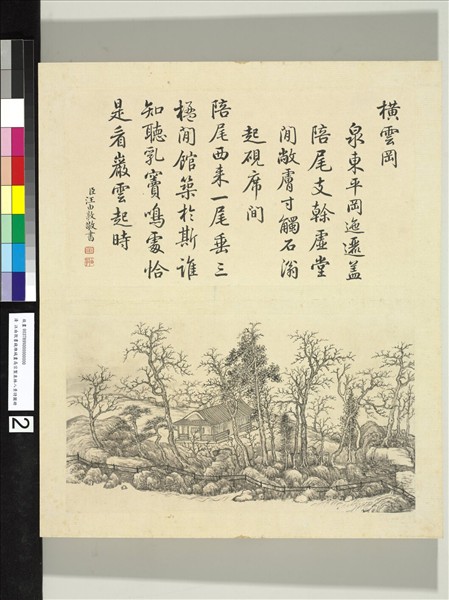 橫雲岡
泉東平岡迤邐蓋
陪尾支榦虛堂
間敞膚寸觸石滃
起硯席間
陪尾西来一尾垂三
楹閒館築於斯誰
知聽乳竇鳴處恰
是看巖雲起時
臣汪由敦敬書
2